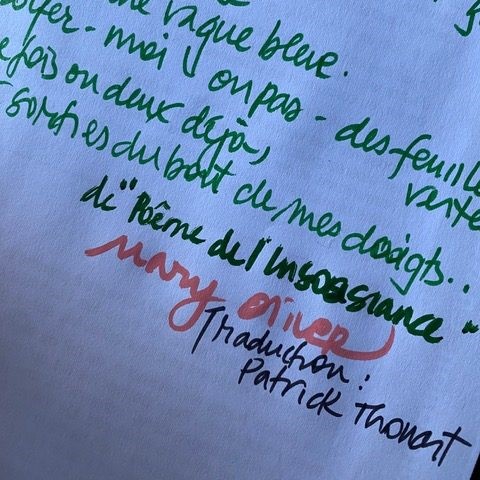 ne vague bleue.
oyez-moi ou pas - des feuille
e fois ou deux déjà, verte
t sorties du bout de mes doigts..
de "Poème de l'Insouciance"
mary oliver
Traduction :
Patrick Thonart